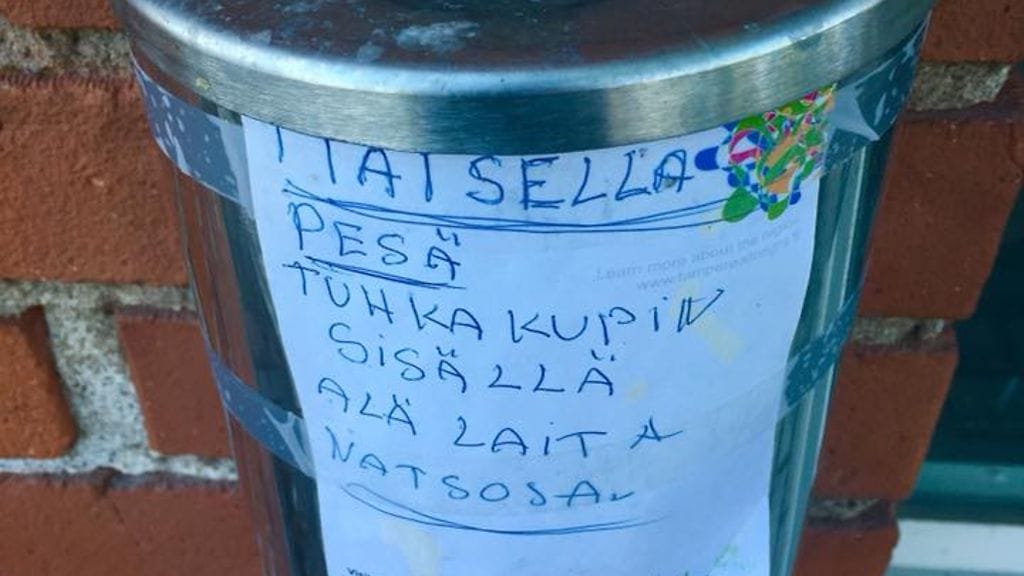 TIAISELLA
PESÄ
TUHKA KUPIN
SISÄLLÄ
ALÄ LAITA
NATSOSA
Learn more about the